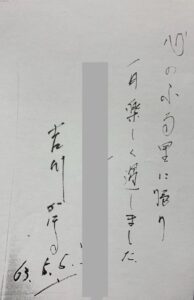 心のふる里に帰り
一日楽しく過しました
63.